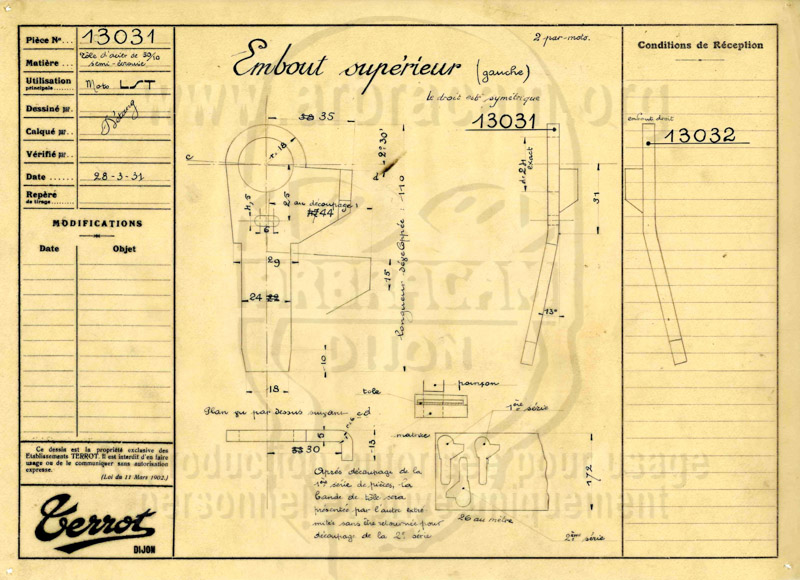 Pièce Nº... 13031
Matière... Tôle d'acier de 39/10
semi-écrouie
Utilisation
principale........ Moto LST
Dessiné par.
Calqué par..
Vérifié par..
Date...... 28-3-31
Repère
de tirage........
MODIFICATIONS
Date Objet
Ce dessin est la propriété exclusive des
Etablissements TERROT. Il est interdit d'en faire
usage ou de le communiquer sans autorisation
expresse.
(Loi du 11 Mars 1902.)
Terrot
DIJON
2-par-moto.
Embout supérieur (gauche)
Le droit est symétrique
13031
35
r.18
c
2°30'
d=24
exact
31
4,5
25
au découpage
44
6
29
15
Longueur développée = 110
24 22
13°
10
18
Plan vu par dessus suivant cd
5
r=6
13
30
Après découpage de la
1ère série de pièces, la
bande de tôle sera
présentée par l'autre extré
mitée sans être retournée pour
découpage de la 2e série
tole
poinçon
matrice
1ère série
172
26 au mètre
2ème série
Conditions de Réception
embout droit
13032
www.arbracan.org
ARBRACAN
DIJON
Reproduction autorisée pour usage
personnel et privé uniquement